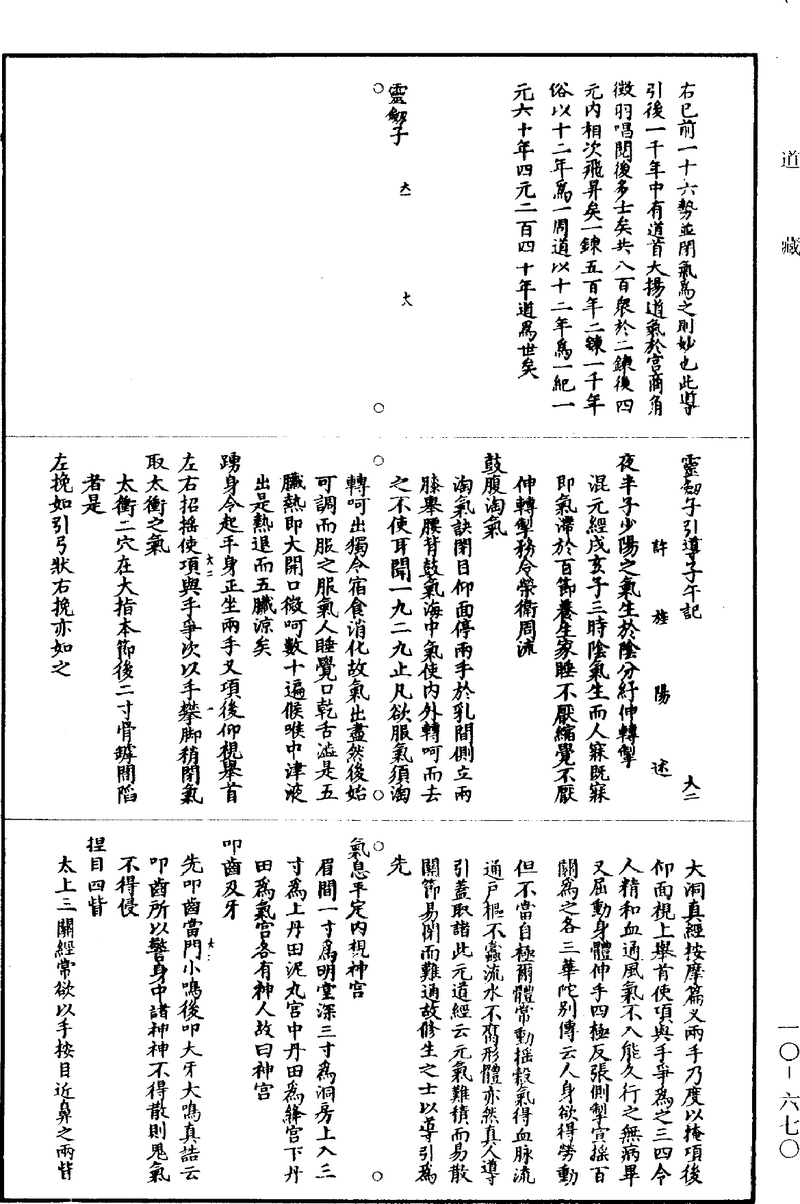 道藏
右已前一十六勢並閉氣為之則妙也此導
引後一千年中有道首大揚道氣於宮商角
徵羽唱閱後多士矣共八百眾於二鍊後四
元內相次飛昇矣一鍊五百年二鍊一千年
俗以十二年為一周道以十二年為一紀一
元六十年四元二百四十年道為世矣
靈劔子
靈劔子引導子午記 大二
許旌陽述
夜半子少陽之氣生於陰分紓伸轉掣
混元經戌亥子三時陰氣生而人寐既寐
即氣滯於百節養生家睡不厭縮覺不厭
伸轉掣務令榮衛周流
鼓腹淘氣
淘氣訣閉目仰面停兩手於乳間側立兩
膝舉腰背鼓氣海中氣使內外轉呵而去
之不使耳聞一九二九止凡欲服氣須淘
轉呵出獨令宿食消化故氣出盡然後始
可調而服之服氣人睡覺口乾舌澁是五
臟熱即大開口微呵數十遍候喉中津液
出是熱退而五臟涼矣
踴身令起平身正坐兩手叉項後仰視舉首
左右招搖使項與手爭次以手攀脚稍閉氣
取太衝之氣
太衝二穴在大指本節後二寸骨罅間陷
者是
左挽如引弓狀右挽亦如之
大洞真經按摩篇叉兩手乃度以掩項後
仰面視上舉首使項與手爭為之三四令
人精和血通風氣不入能久行之無病畢
又屈動身體伸手四極反張側掣宣搖百
關為之各三華陀別傳云人身欲得勞動
但不當自極爾體常動搖穀氣得血脉流
通戶樞不蠹流水不腐形體亦然真人導
引蓋取諸此元道經云元氣難積而易散
關節易閉而難通故修生之士以導引為
先
氣息平定內視神宮
眉間一寸為明堂深三寸為洞房上入三
寸為上丹田泥丸宮中丹田為絳宮下丹
田為氣宮各有神人故曰神宮
叩齒及牙
先叩齒當門小鳴後叩大牙大鳴真誥云
叩齒所以警身中諸神神不得散則鬼氣
不得侵
捏目四眥
太上三關經常欲以手按目近鼻之兩眥
一〇－六七〇